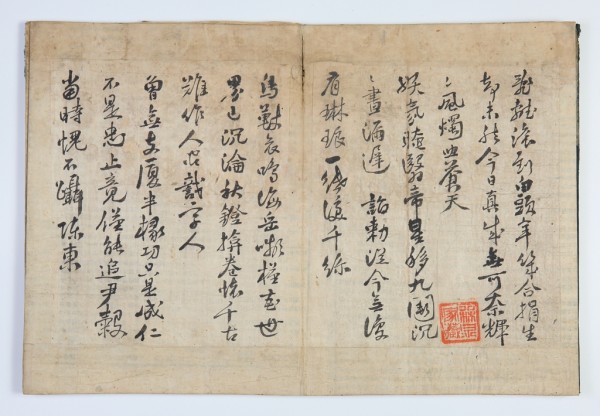 亂離滾到白頭年幾合捐生
却未然今日真成無可奈輝
〻風燭照蒼天
妖氛晻翳帝星移九闕沉
〻晝漏遲 詔勅從今無復
有琳琅一紙淚千絲
鳥獸哀鳴海岳嚬槿花世
界已沉淪秋鐙揜卷懷千古
難作人間識字人
曾無支廈半椽功只是成仁
不是忠止竟僅能追尹穀
當時愧不躡陳東